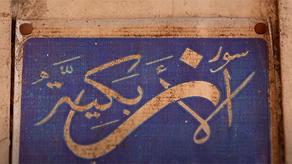 سور
الأزبكيَّة